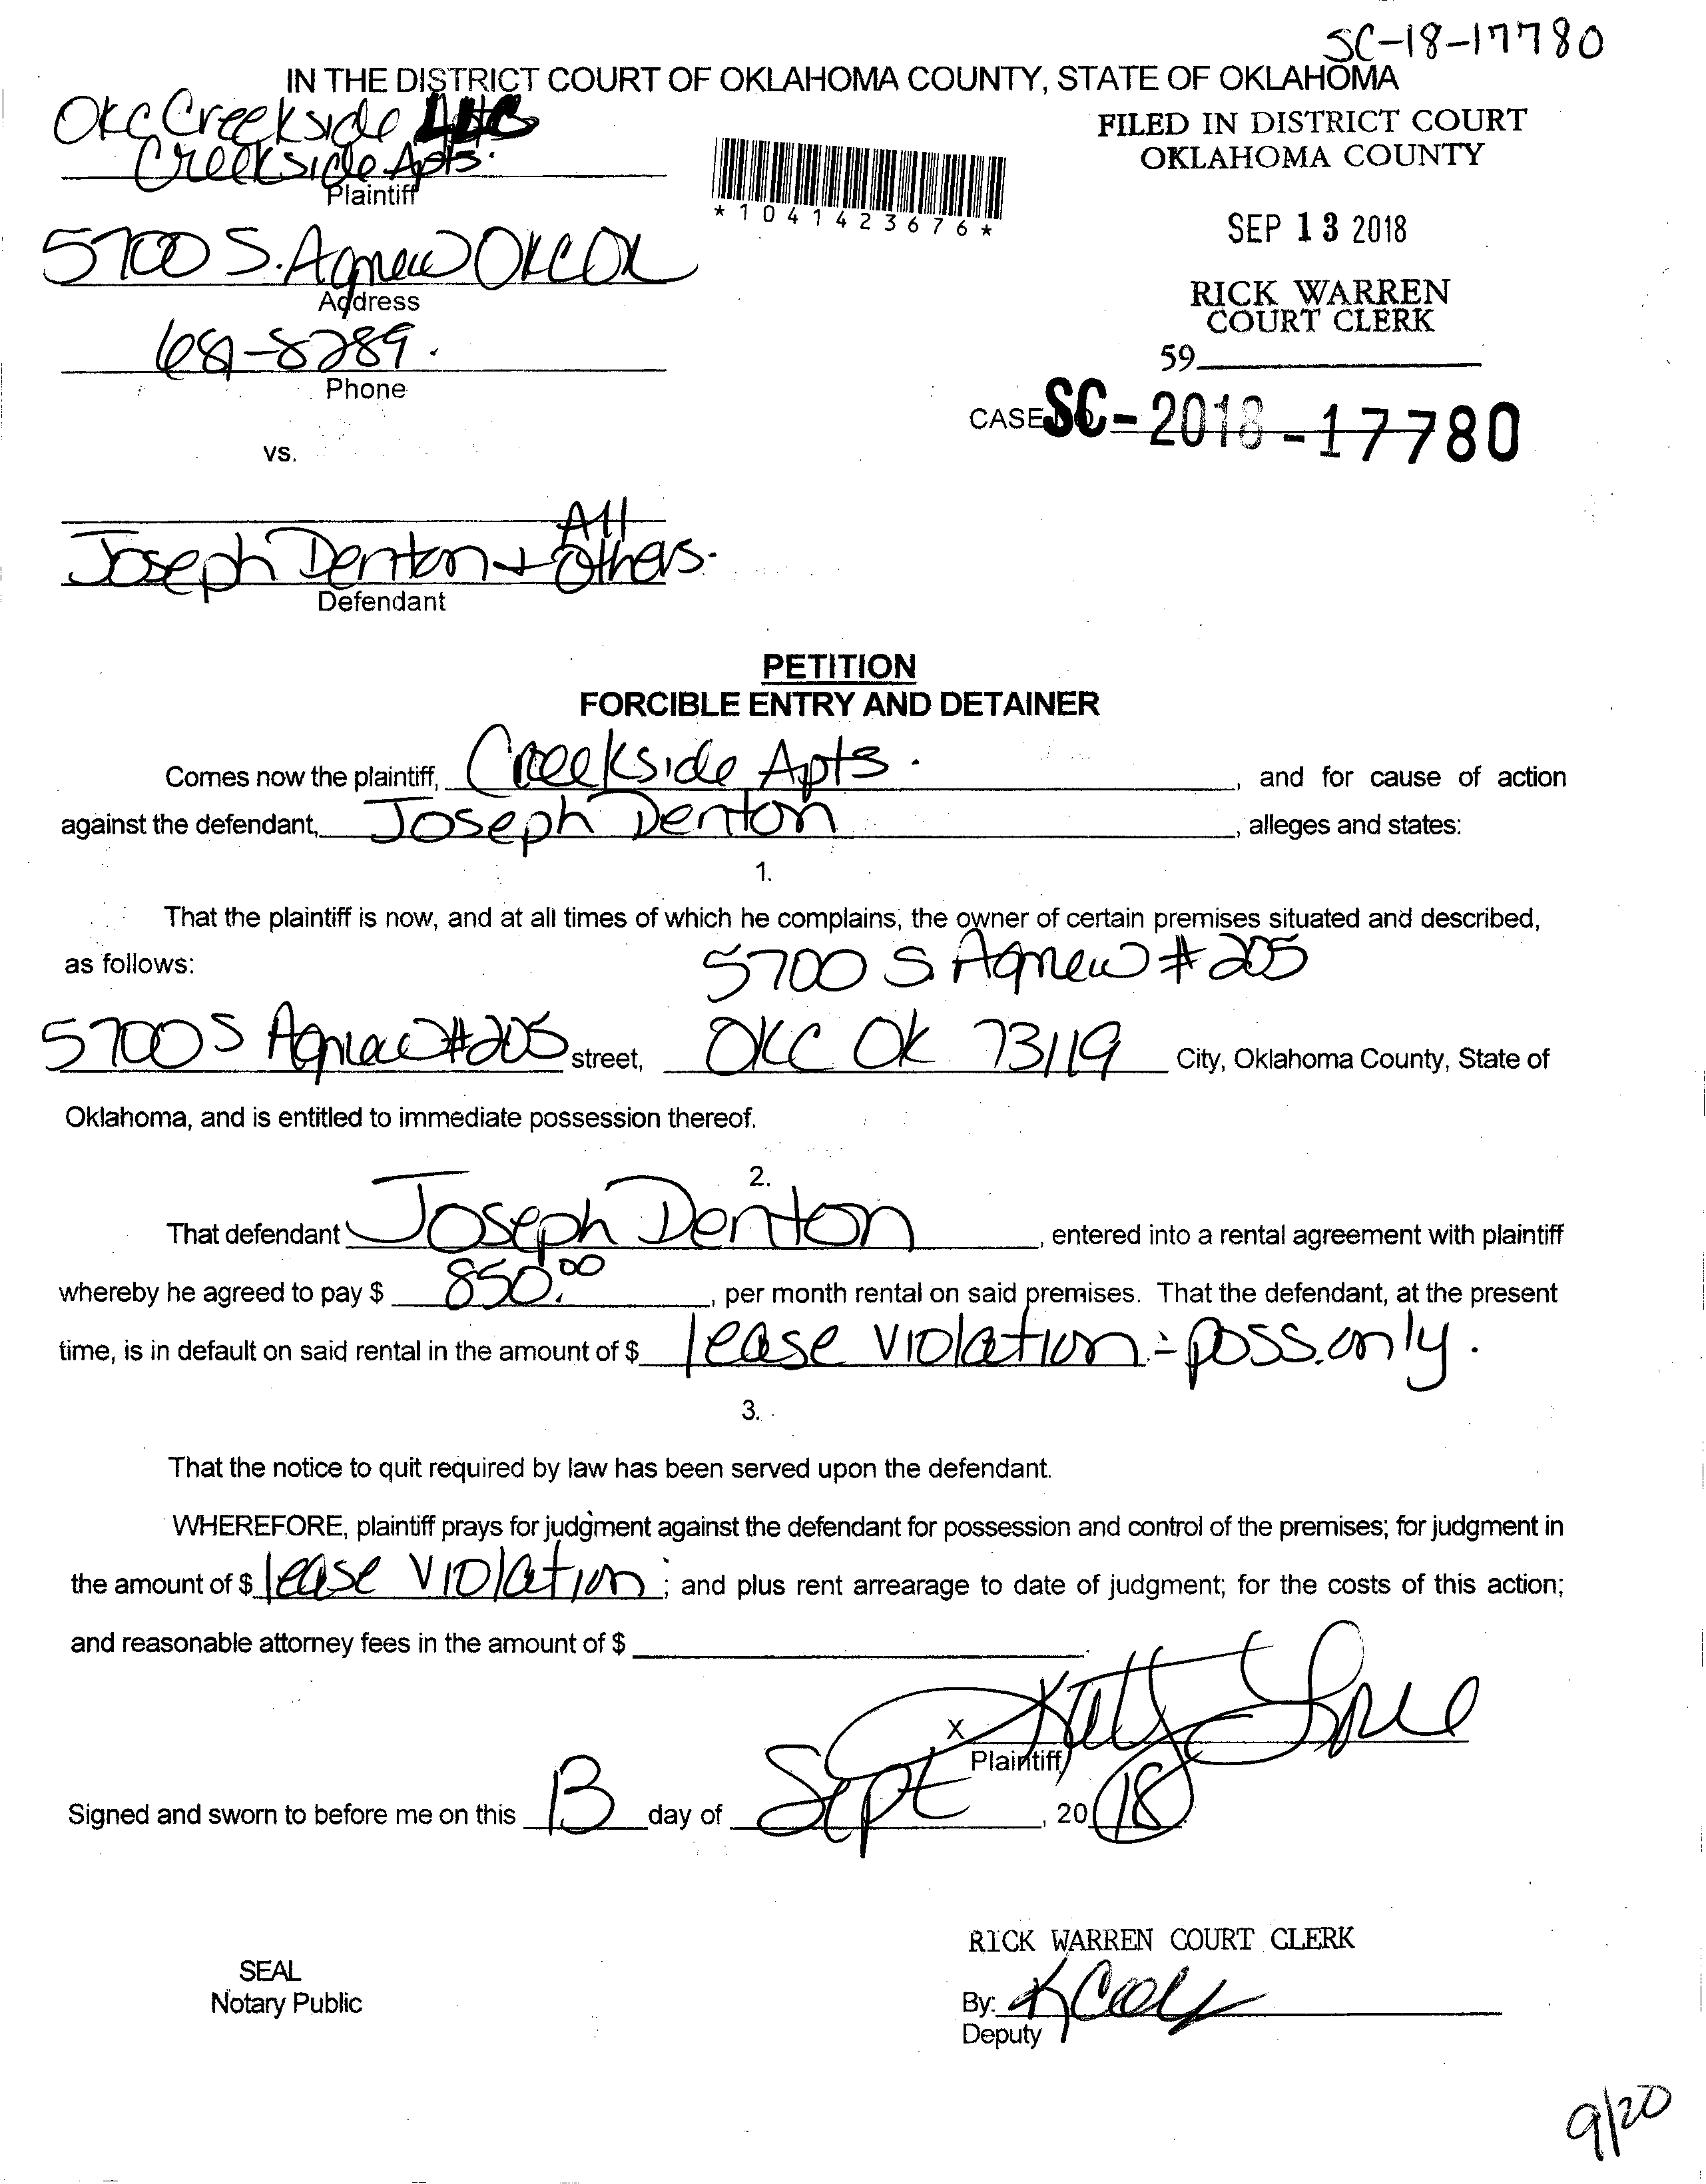 SC-18-17780
IN THE DISTRICT COURT OF OKLAHOMA COUNTY, STATE OF OKLAHOMA
OKC Creekside LLC
Creekside Apts.
Plaintiff
5700 S. Agnew OKC OK
Address
681-8289.
Phone
vs.
*1041423676*
FILED IN DISTRICT COURT
OKLAHOMA COUNTY
SEP 13 2018
RICK WARREN
COURT CLERK
59
CASE SC-2018-17780
All
Joseph Denton + Others.
Defendant
PETITION
FORCIBLE ENTRY AND DETAINER
Comes now the plaintiff, Creekside Apts. , and for cause of action
against the defendant, Joseph Denton , alleges and states:
1.
That the plaintiff is now, and at all times of which he complains, the owner of certain premises situated and described,
as follows: 5700 S. Agnew #205
5700 S Agnew #205 street, OKC OK 73119 City, Oklahoma County, State of
Oklahoma, and is entitled to immediate possession thereof.
2.
That defendant Joseph Denton , entered into a rental agreement with plaintiff
whereby he agreed to pay $ 850.00 , per month rental on said premises. That the defendant, at the present
time, is in default on said rental in the amount of $ lease violation - poss. only.
3.
That the notice to quit required by law has been served upon the defendant.
WHEREFORE, plaintiff prays for judgment against the defendant for possession and control of the premises; for judgment in
the amount of $ lease violation ; and plus rent arrearage to date of judgment; for the costs of this action;
and reasonable attorney fees in the amount of $ .
X
Plaintiff
Signed and sworn to before me on this 13 day of Sept , 20 18.
RICK WARREN COURT CLERK
SEAL
Notary Public
By:
Deputy
9/20